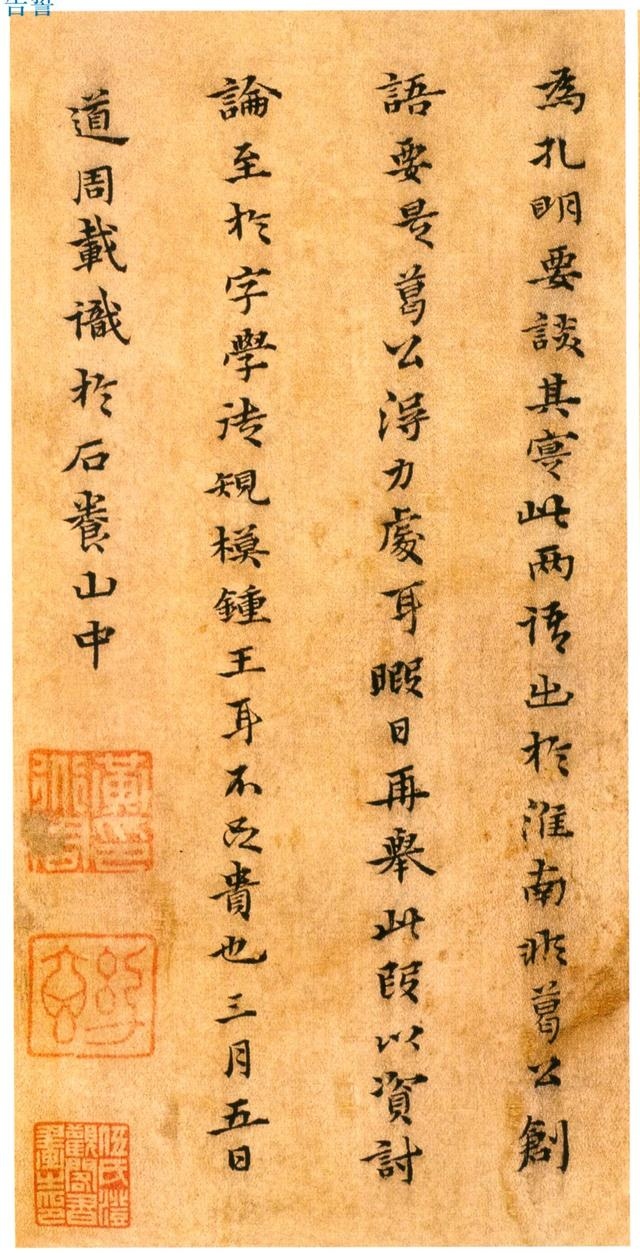 告誓
為孔明要談其寔此兩語出於淮南非葛公創
語要是葛公得力處耳暇日再舉此段以資討
論至於字學法規模鍾王耳不足貴也三月五日
道周載識於石養山中